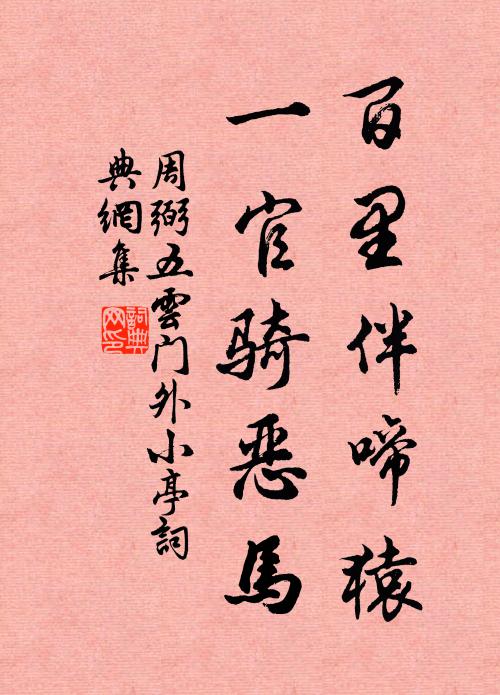 百里伴啼猿
一官骑恶馬
周弼五雲门外小亭詞
典網集
詞典网印